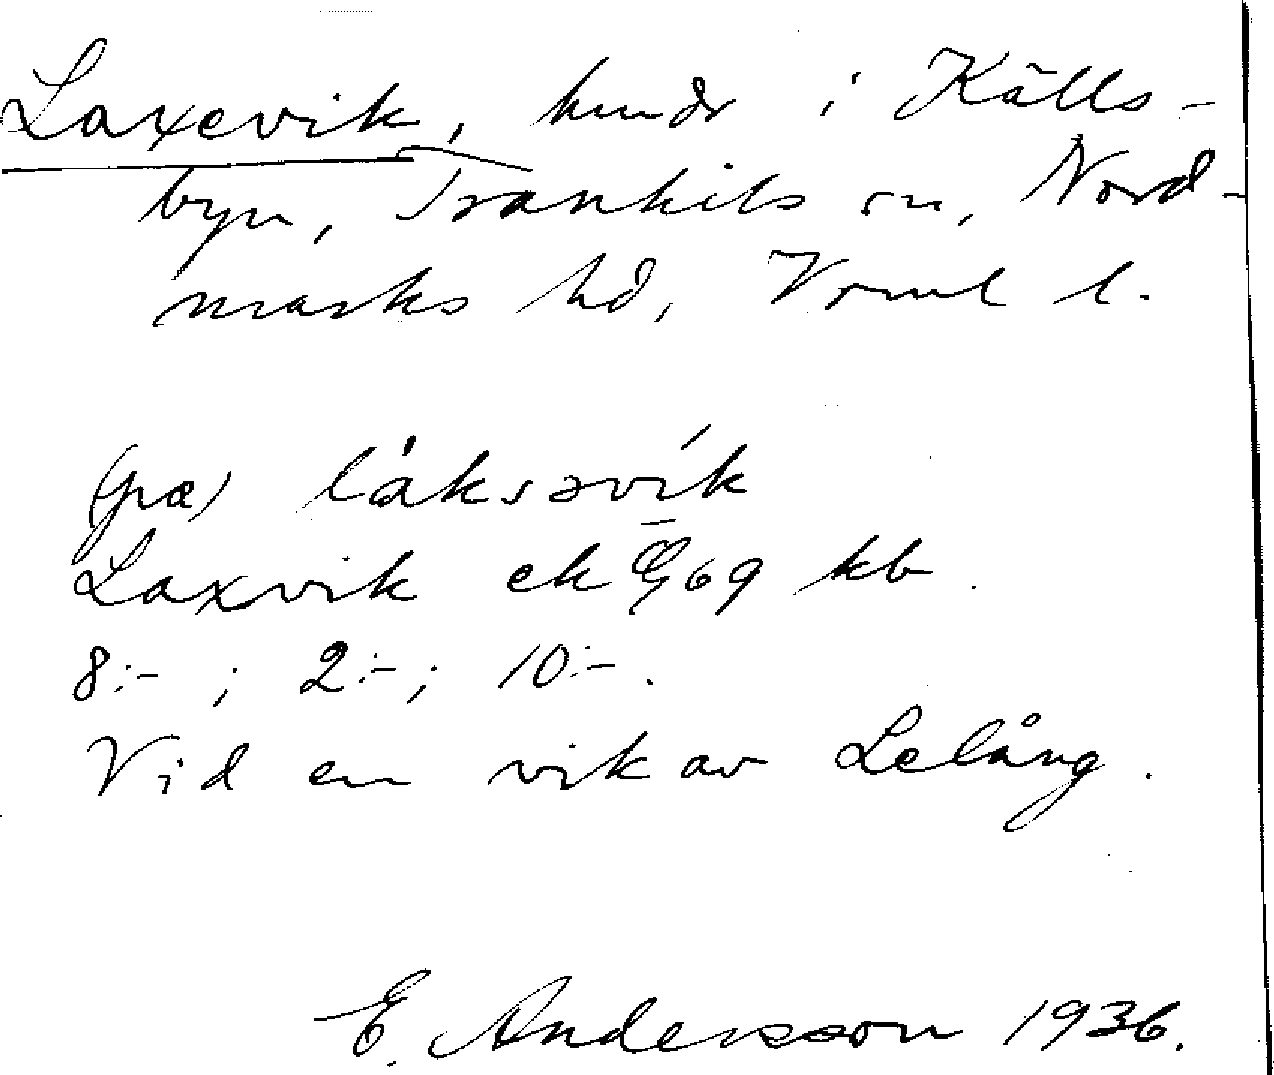 Laxevik, hmdr i Källs-
byn, Trankils sn, Nord-
marks hd, Vrml l.
(på) låksəvik
Laxvik ek 69 kb.
8:- ; 2:- ; 10:-.
Vid en vik av Lelång.
E. Andersson 1936.